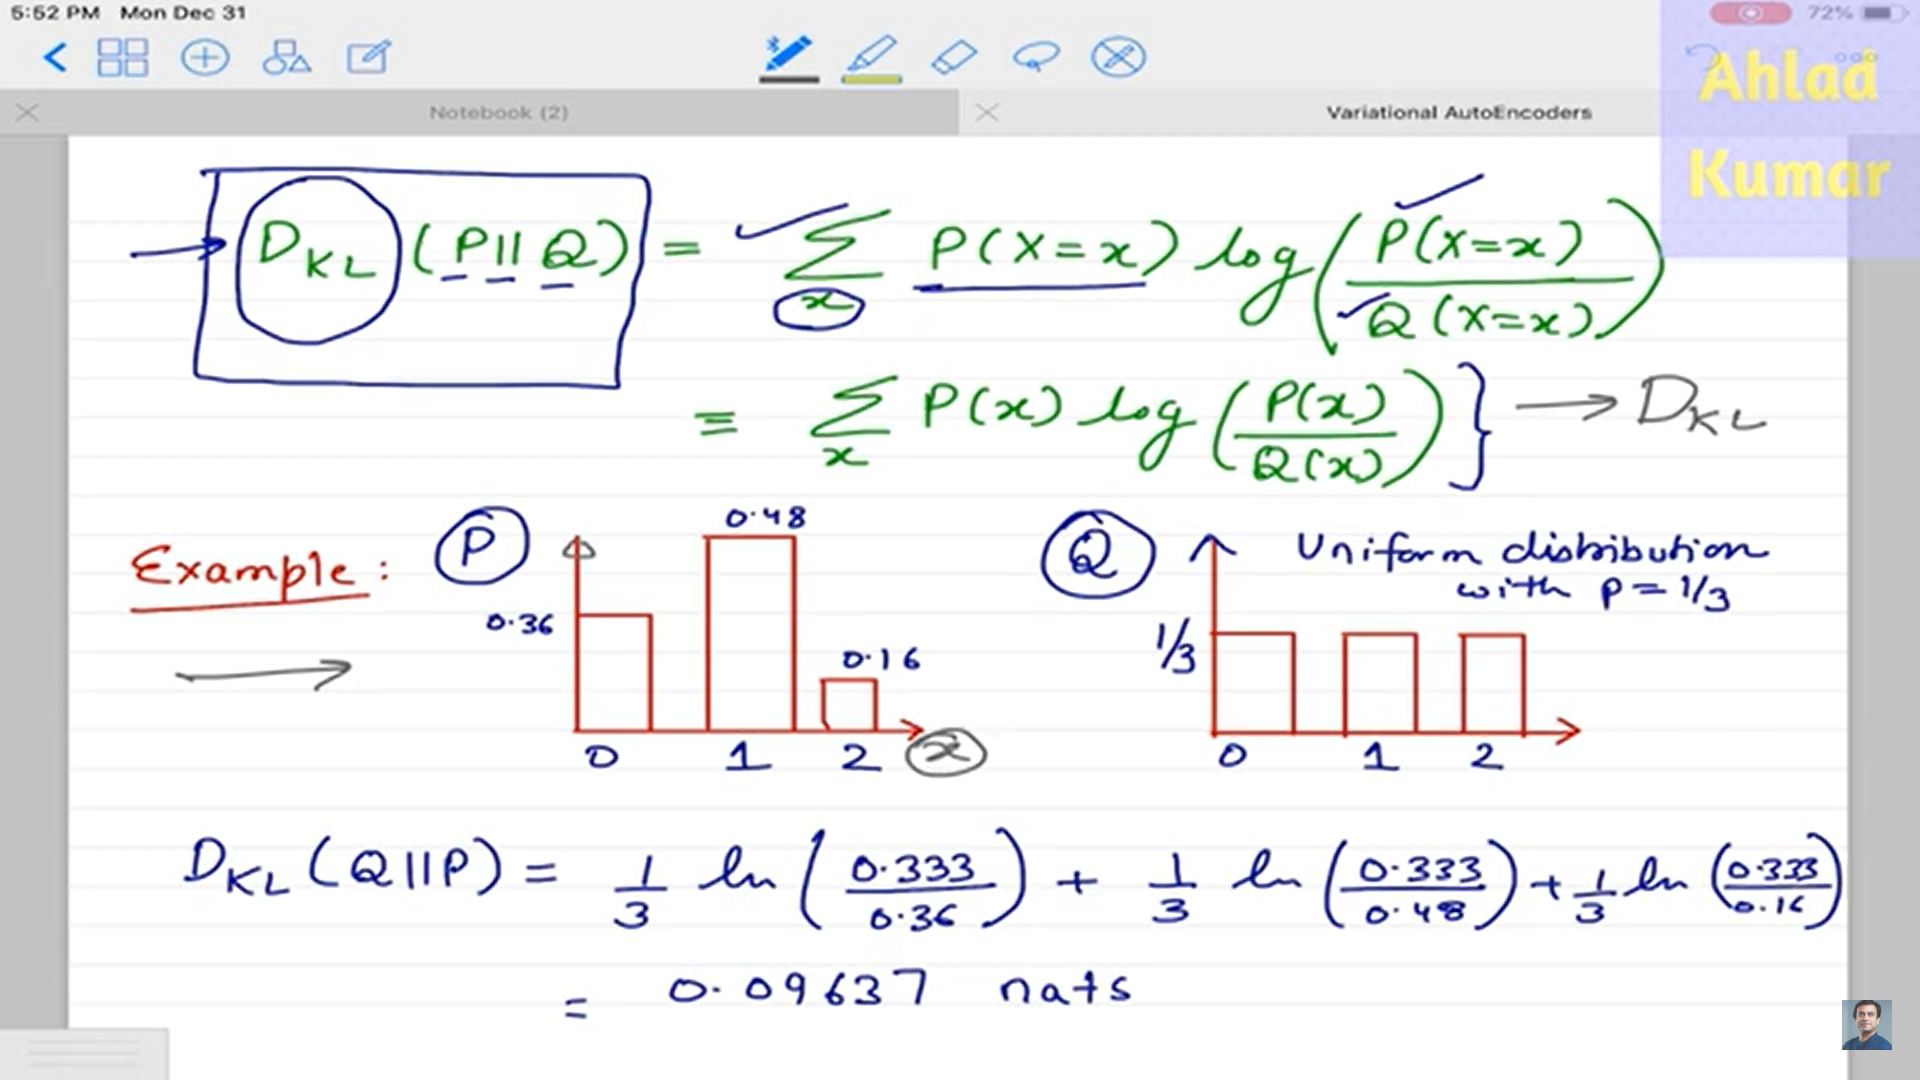 5:52 PM Mon Dec 31
72%
Ahlad
Kumar
Notebook (2)
Variational AutoEncoders
D_KL (P || Q) = Σ_x P(X=x) log( P(X=x) / Q(X=x) )
= Σ_x P(x) log( P(x) / Q(x) ) } → D_KL
Example :
P
0.48
0.36
0.16
0 1 2 x
Q
Uniform distribution
with P = 1/3
1/3
0 1 2
D_KL (Q||P) = 1/3 ln( 0.333 / 0.36 ) + 1/3 ln( 0.333 / 0.48 ) + 1/3 ln( 0.333 / 0.16 )
= 0.09637 nats